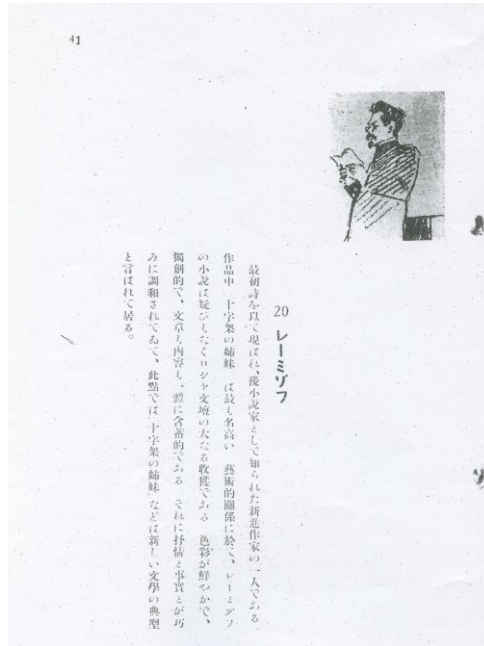 41
20 レーミゾフ
最初詩を以て現はれ、後小説家として知られた新進作家の一人である。
作品中「十字架の姉妹」は最も名高い 藝術的關係に於て、レーミゾフ
の小説は疑ひもなくロシヤ文壇の大なる收獲である 色彩が鮮やかで、
獨創的で、文章も内容も一體に含蓄的である それに抒情と事實とが巧
みに調和されてゐて、此點では「十字架の姉妹」などは新しい文學の典型
と言はれて居る。